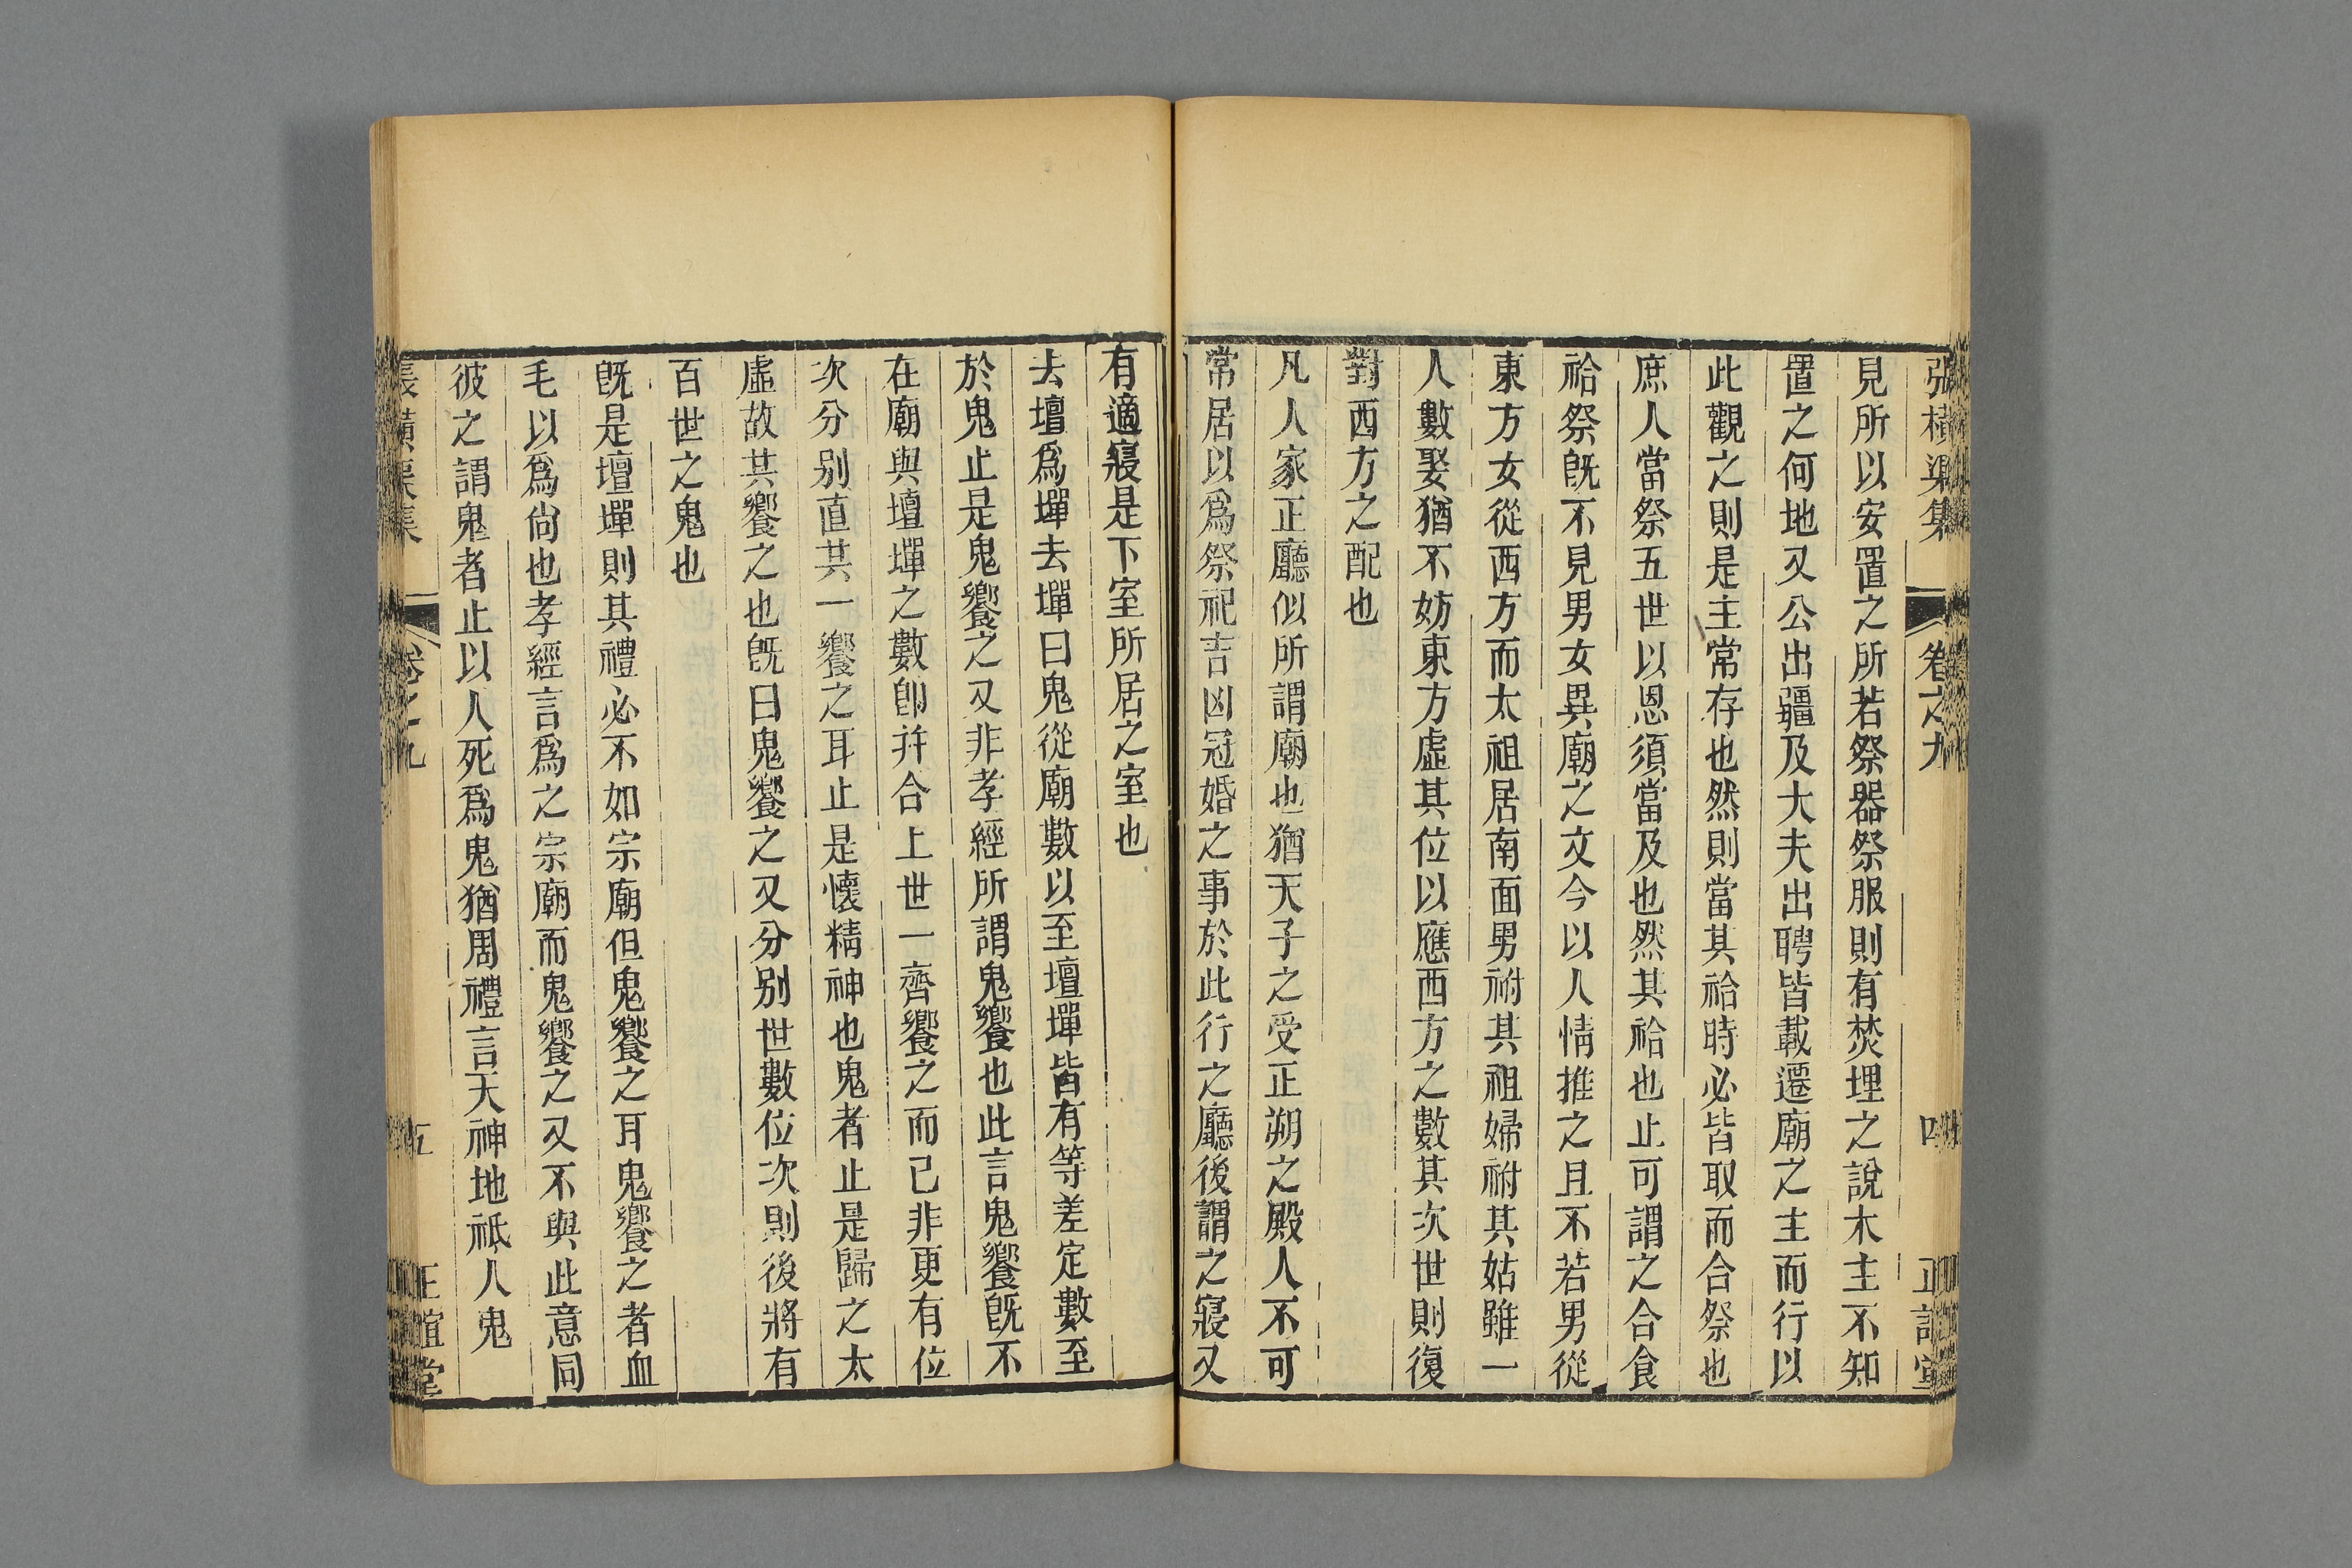 張橫渠集 卷之九 四 正誼堂
見所以安置之所若祭器祭服則有焚埋之說木主不知
置之何地又公出疆及大夫出聘皆載遷廟之主而行以
此觀之則是主常存也然則當其祫時必皆取而合祭也
庶人當祭五世以恩須當及也然其祫也止可謂之合食
祫祭旣不見男女異廟之文今以人情推之且不若男從
東方女從西方而太祖居南面男祔其祖婦祔其姑雖一
人數娶猶不妨東方虛其位以應西方之數其次世則復
對西方之配也
凡人家正廳似所謂廟也猶天子之受正朔之殿人不可
常居以爲祭祀吉凶冠婚之事於此行之廳後謂之寢又
有適寢是下室所居之室也
去壇爲墠去墠曰鬼從廟數以至壇墠皆有等差定數至
於鬼止是鬼饗之又非孝經所謂鬼饗也此言鬼饗旣不
在廟與壇墠之數卽幷合上世一齊饗之而已非更有位
次分别直共一饗之耳止是懷精神也鬼者止是歸之太
虛故共饗之也旣曰鬼饗之又分别世數位次則後將有
百世之鬼也
旣是壇墠則其禮必不如宗廟但鬼饗之耳鬼饗之者血
毛以爲尙也孝經言爲之宗廟而鬼饗之又不與此意同
彼之謂鬼者止以人死爲鬼猶周禮言天神地祗人鬼
張橫渠集 卷之九 五 正誼堂